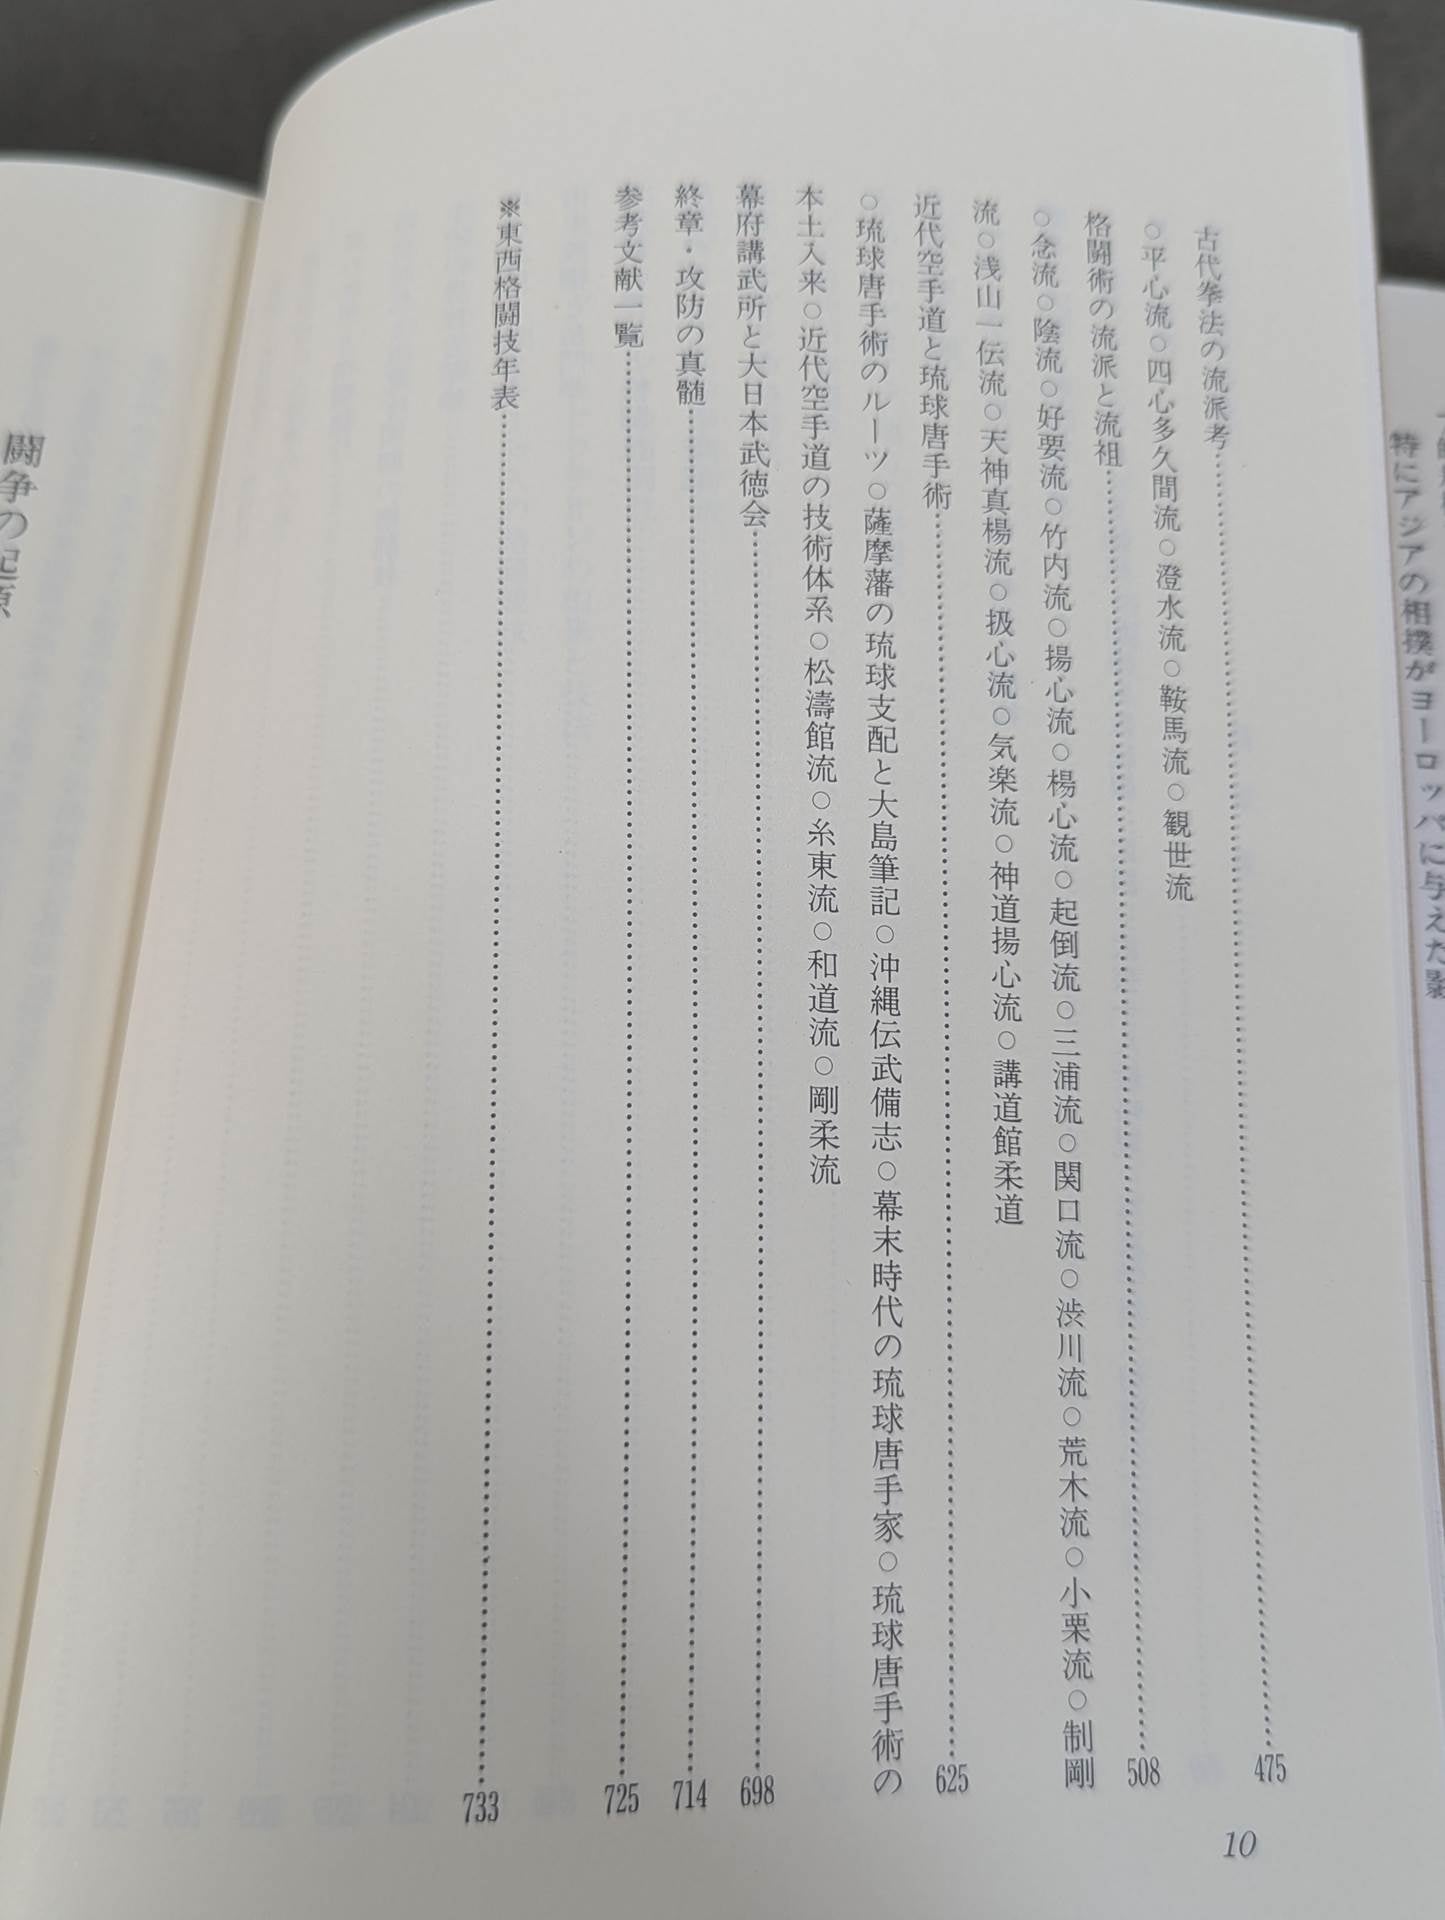 特にアジアの相撲がヨーロッパに与えた影
古代拳法の流派考……475
○平心流○四心多久間流○澄水流○鞍馬流○観世流
格闘術の流派と流祖……508
○念流○陰流○好要流○竹内流○揚心流○楊心流○起倒流○三浦流○関口流○渋川流○荒木流○小栗流○制剛
流○浅山一伝流○天神真楊流○扱心流○気楽流○神道揚心流○講道館柔道
近代空手道と琉球唐手術……625
○琉球唐手術のルーツ○薩摩藩の琉球支配と大島筆記○沖縄伝武備志○幕末時代の琉球唐手家○琉球唐手術の
本土入来○近代空手道の技術体系○松濤館流○糸東流○和道流○剛柔流
幕府講武所と大日本武徳会……698
終章・攻防の真髄……714
参考文献一覧……725
※東西格闘技年表……733
10
闘争の起原